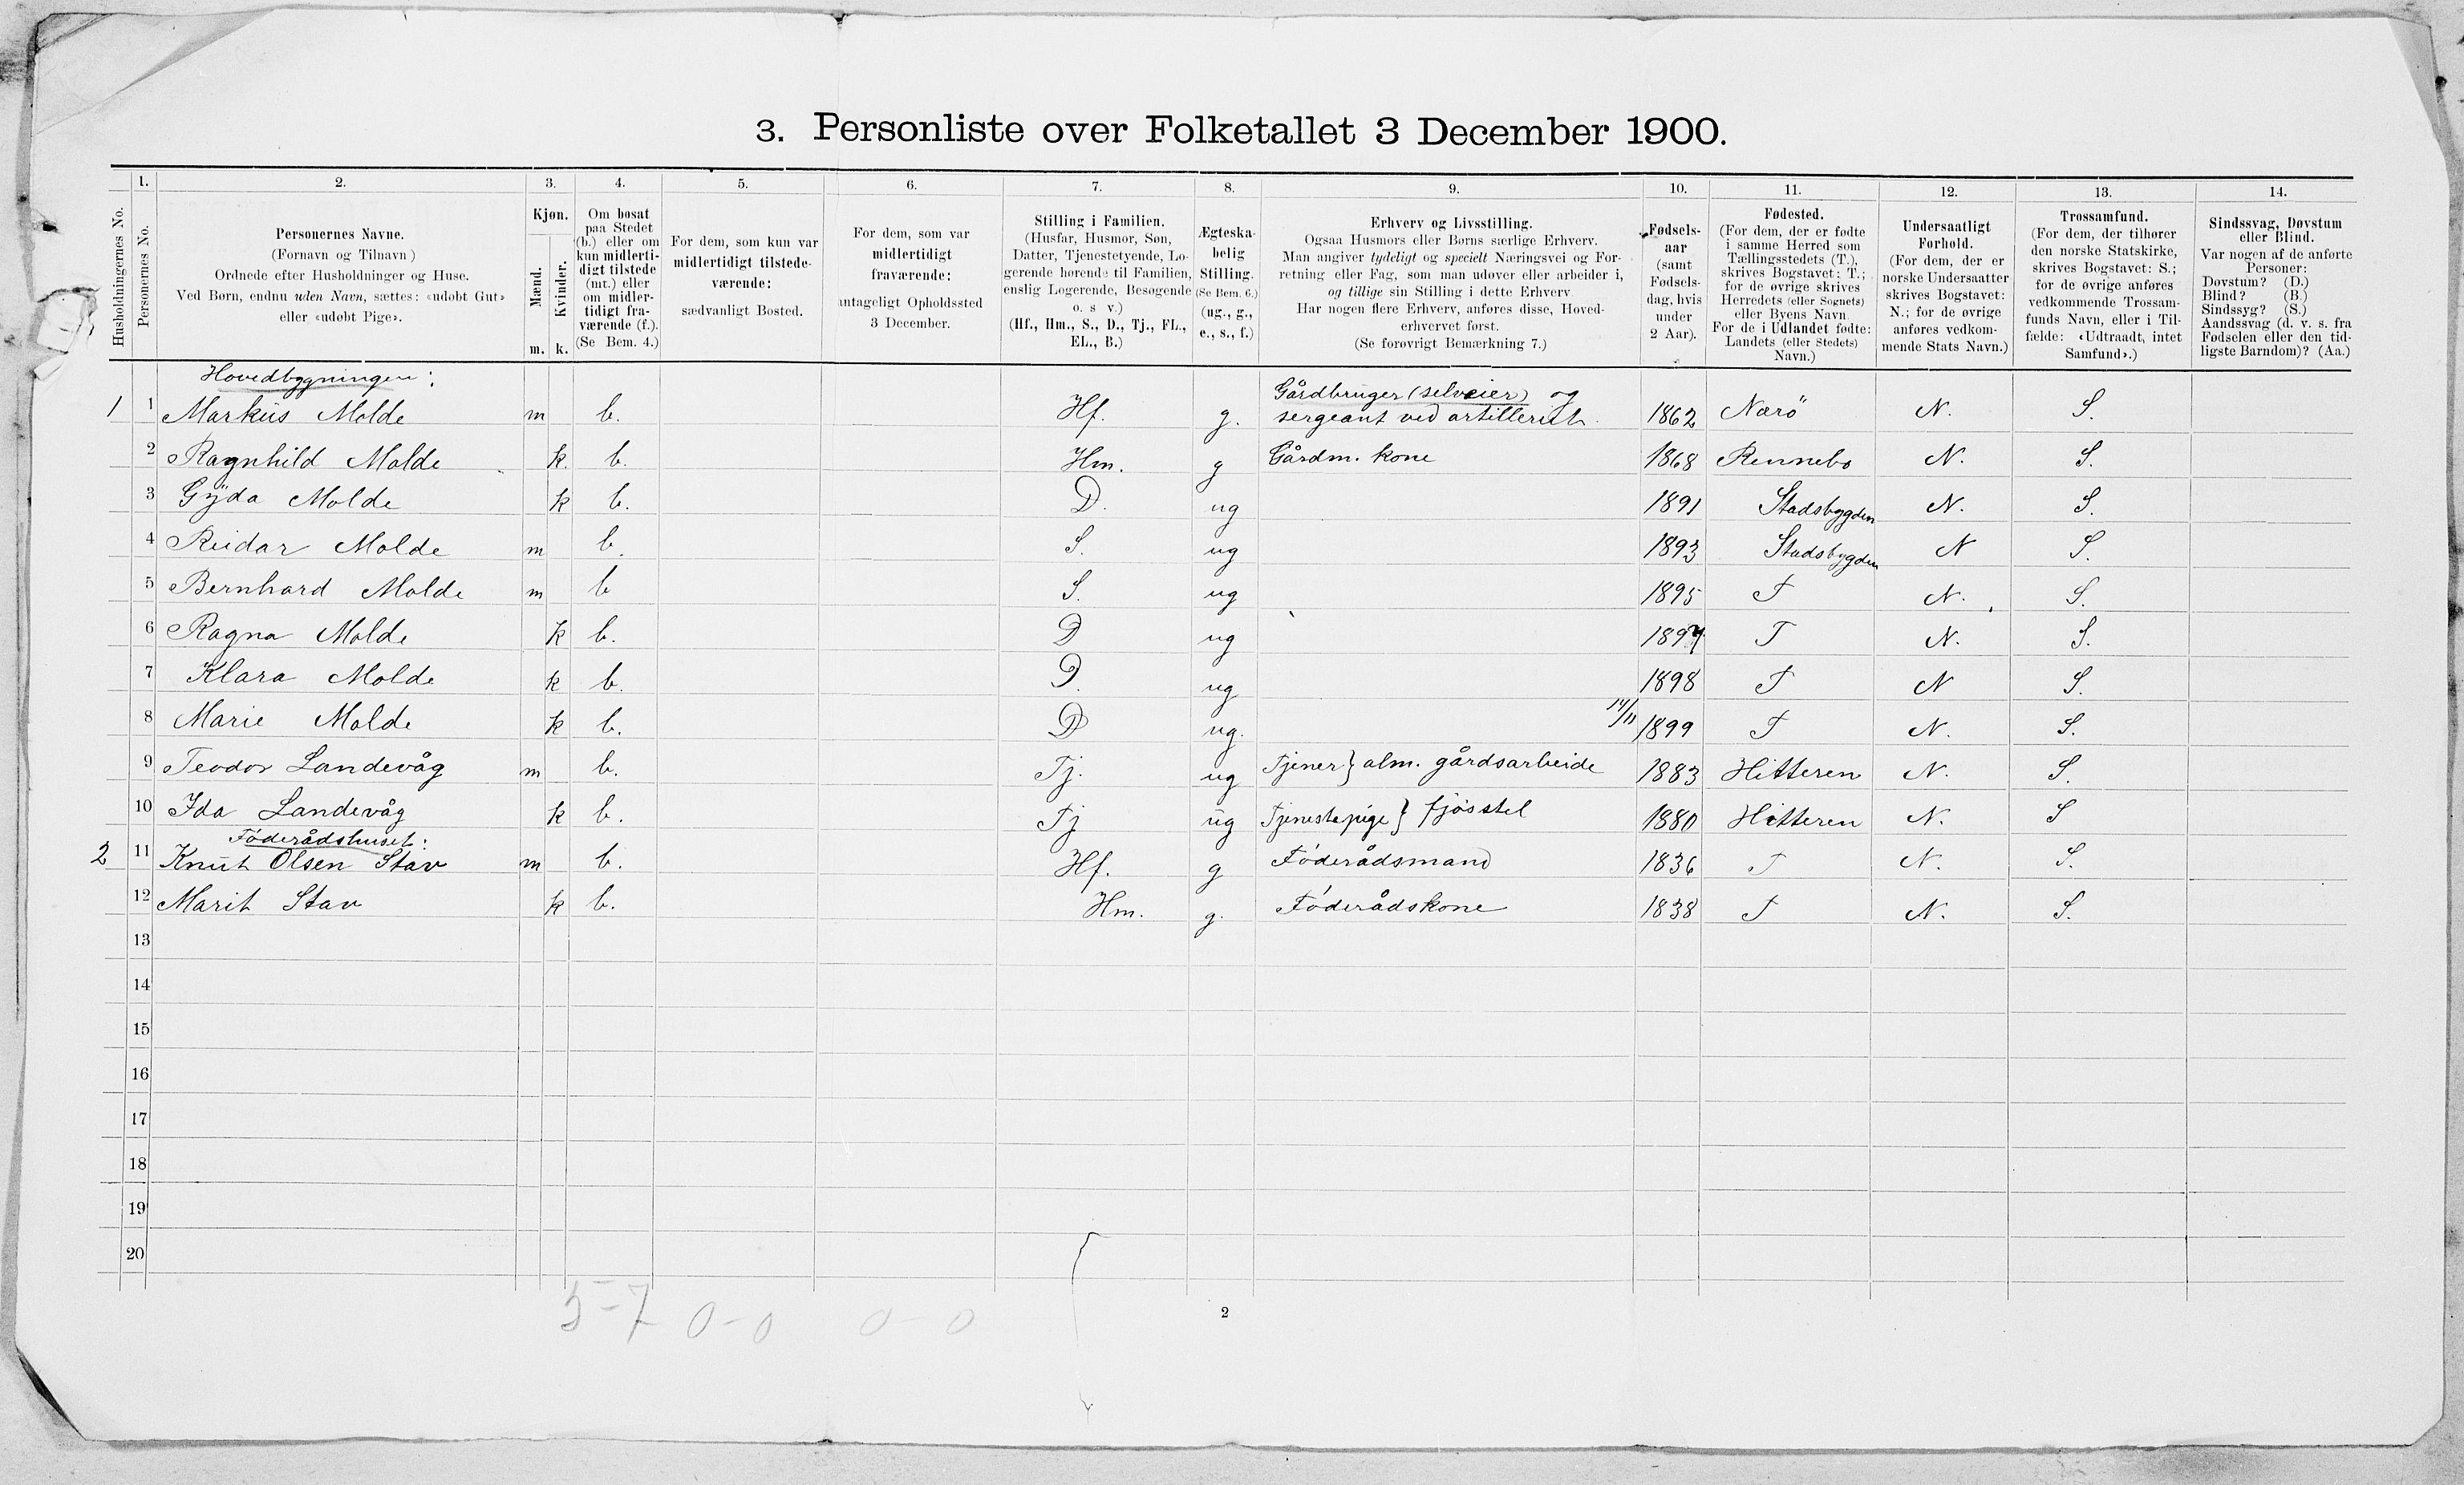 3. Personliste over Folketallet 3 December 1900.
Husholdningernes No.
1.
Personernes No.
2.
Personernes Navne.
(Fornavn og Tilnavn)
Ordnede efter Husholdninger og Huse.
Ved Børn, endnu uden Navn, sættes: «udøbt Gut»
eller «udøbt Pige».
3.
Kjøn.
Mænd.
m.
Kvinder.
k.
4.
Om bosat
paa Stedet
(b.) eller om
kun midlerti-
digt tilstede
(mt.) eller
om midler-
tidigt fra-
værende (f.).
(Se Bem. 4.)
5.
For dem, som kun var
midlertidigt tilstede-
værende:
sædvanligt Bosted.
6.
For dem, som var
midlertidigt
fraværende:
antageligt Opholdssted
3 December.
7.
Stilling i Familien.
(Husfar, Husmor, Søn,
Datter, Tjenestetyende, Lo-
gerende hørende til Familien,
enslig Logerende, Besøgende
o. s v.)
(Hf., Hm., S., D., Tj., FL.,
EL., B.)
8.
Ægteska-
belig
Stilling.
(Se Bem. 6.)
(ug., g.,
e., s., f.)
9.
Erhverv og Livsstilling.
Ogsaa Husmors eller Børns særlige Erhverv.
Man angiver tydeligt og specielt Næringsvei og For-
retning eller Fag, som man udøver eller arbeider i,
og tillige sin Stilling i dette Erhverv.
Har nogen flere Erhverv, anføres disse, Hoved-
erhvervet først.
(Se forøvrigt Bemærkning 7.)
10.
Fødsels-
aar
(samt
Fødsels-
dag, hvis
under
2 Aar).
11.
Fødested.
(For dem, der er fødte
i samme Herred som
Tællingsstedets (T.),
skrives Bogstavet: T.;
for de øvrige skrives
Herredets (eller Sognets)
eller Byens Navn.
For de i Udlandet fødte:
Landets (eller Stedets)
Navn.)
12.
Undersaatligt
Forhold.
(For dem, der er
norske Undersaatter
skrives Bogstavet:
N.; for de øvrige
anføres vedkom-
mende Stats Navn.)
13.
Trossamfund.
(For dem, der tilhører
den norske Statskirke,
skrives Bogstavet: S.;
for de øvrige anføres
vedkommende Trossam-
funds Navn, eller i Til-
fælde: «Udtraadt, intet
Samfund».)
14.
Sindssvag, Døvstum
eller Blind.
Var nogen af de anførte
Personer:
Døvstum? (D.)
Blind? (B.)
Sindssyg? (S.)
Aandssvag (d. v. s. fra
Fødselen eller den tid-
ligste Barndom)? (Aa.)
Hovedbygningen:
Gårdbruger (selveier) og
1 1 Markus Molde m b. Hf. g. sergeant ved artilleriet. 1862 Nærö N. S.
2 Ragnhild Molde k. b. Hm. g Gårdm. kone 1868 Rennebo N. S.
3 Gyda Molde k b. D. ug 1891 Stadsbygden N. S.
4 Reidar Molde m b. S. ug 1893 Stadsbygden N S.
5 Bernhard Molde m b S. ug 1895 T N. S.
6 Ragna Molde k b. D ug 1897 T N. S.
7 Klara Molde k b. D. ug 1898 T N S.
8 Marie Molde k b. D ug. 14/11 1899 T N. S.
9 Teodor Landevåg m b. Tj. ug Tjener } alm. gårdsarbeide 1883 Hitteren N. S.
10 Ida Landevåg k b. Tj ug Tjenestepige } fjösstel 1880 Hitteren N. S
Föderådshuset:
2 11 Knut Olsen Stav m b. Hf. g Föderådsmand 1836 T N. S.
12 Marit Stav k b. Hm. g. Föderådskone 1838 T N. S.
13
14
15
16
17
18
19
20
5-7 0-0 0-0
2